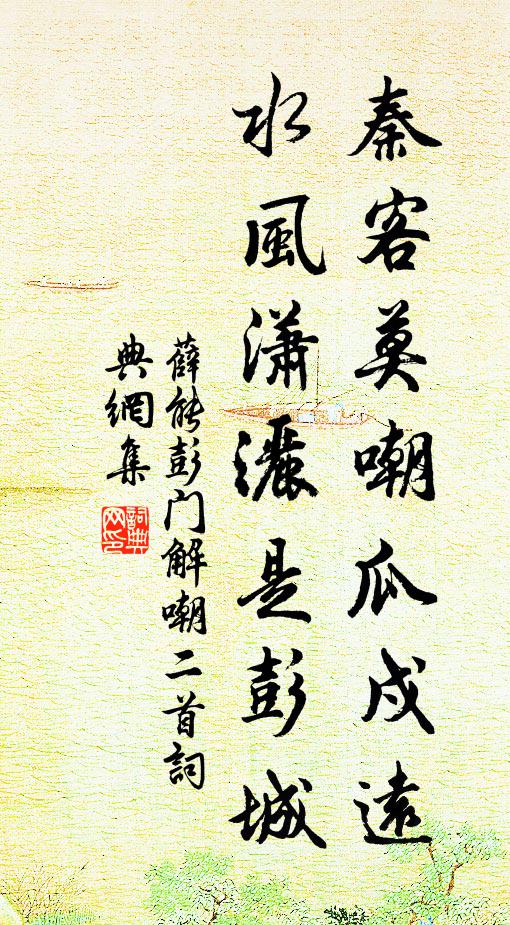 秦客莫嘲瓜戍遠
水風瀟灑是彭城
薛能彭门解嘲二首詞
典網集
詞典
网印